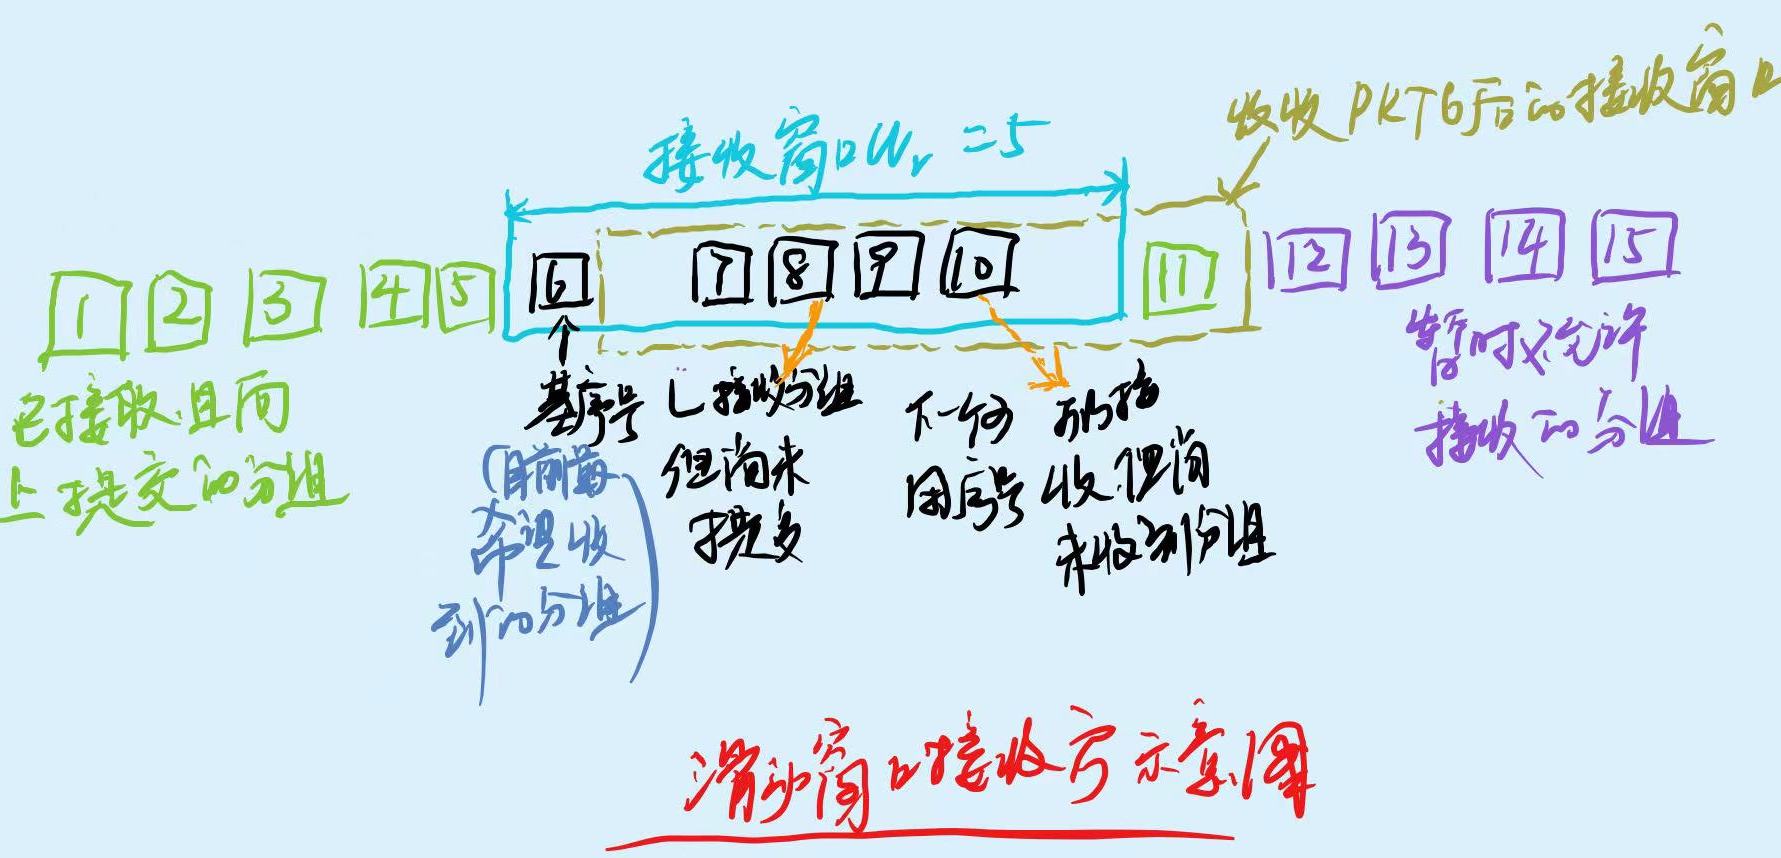 收收PKT6后的接收窗口
接收窗口Wr=5
1 2 3 4 5 6 7 8 9 10 11 12 13 14 15
已接收且向
上提交的分组
基序号
(目前最
希望收
到的分组)
已接收分组
但尚未
提交
下一个可
用序号
所接
收但尚
未收到分组
暂时不允许
接收的分组
滑动窗口接收方示意图